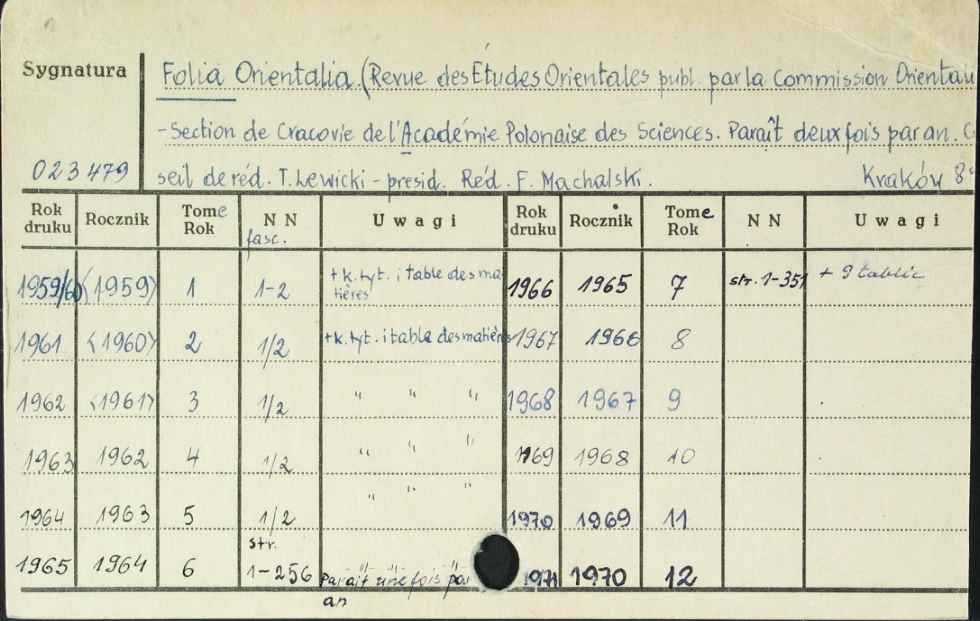 Sygnatura
Folia Orientalia. (Revue des Études Orientales publ. par la Commission Orientali
-Section de Cracovie de l'Académie Polonaise des Sciences. Paraît deux fois par an. C
023479 seil de réd. T. Lewicki - presid. Réd. F. Machalski. Kraków 8°
Rok druku Rocznik Tome Rok NN fasc. Uwagi Rok druku Rocznik Tome Rok NN Uwagi
1959/60 <1959> 1 1-2 + k. tyt. i table des matières 1966 1965 7 str. 1-351 + 9 tablic
1961 <1960> 2 1/2 + k. tyt. i table des matières 1967 1966 8
1962 <1961> 3 1/2 " " " 1968 1967 9
1963 1962 4 1/2 " " " 1969 1968 10
1964 1963 5 1/2 " " " 1970 1969 11
1965 1964 6 str. 1-256 Paraît une fois par an 1971 1970 12